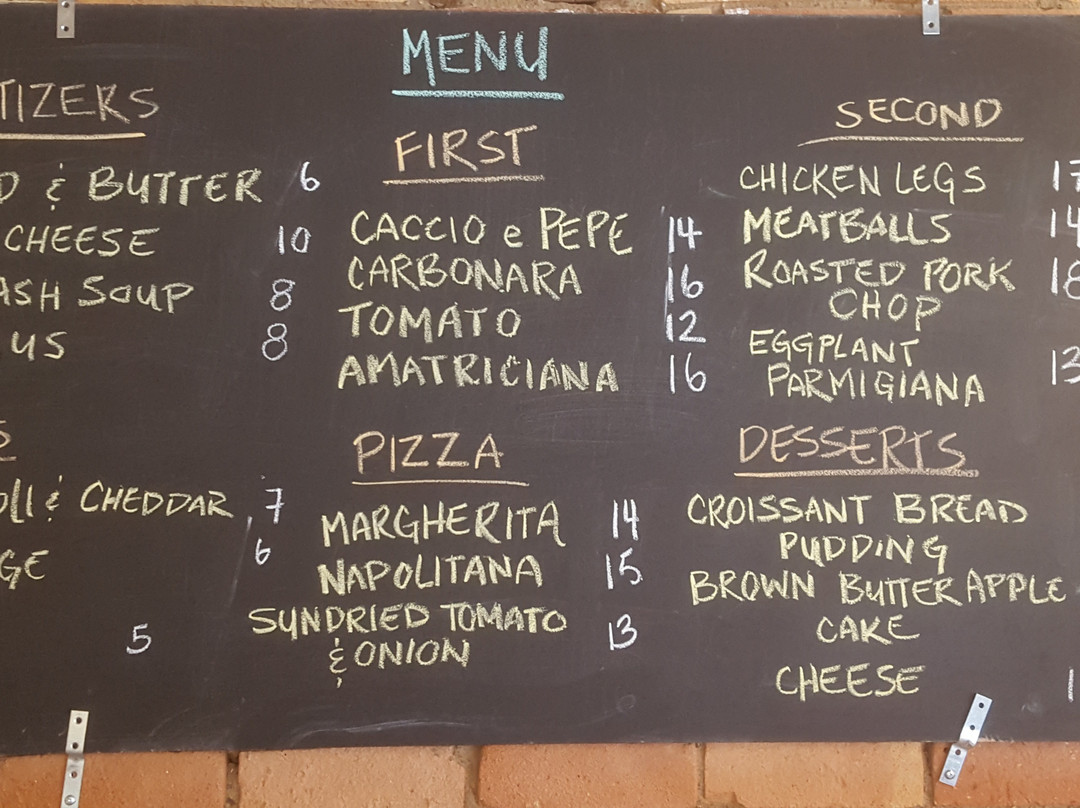 MENU
TIZERS
D & BUTTER 6
CHEESE 10
ASH SOUP 8
US 8
S
OLLI & CHEDDAR 7
GE 6
5
FIRST
CACCIO e PEPE 14
CARBONARA 16
TOMATO 12
AMATRICIANA 16
PIZZA
MARGHERITA 14
NAPOLITANA 15
SUNDRIED TOMATO 13
& ONION
SECOND
CHICKEN LEGS 17
MEATBALLS 14
ROASTED PORK 18
CHOP
EGGPLANT
PARMIGIANA 13
DESSERTS
CROISSANT BREAD
PUDDING
BROWN BUTTER APPLE
CAKE
CHEESE 1